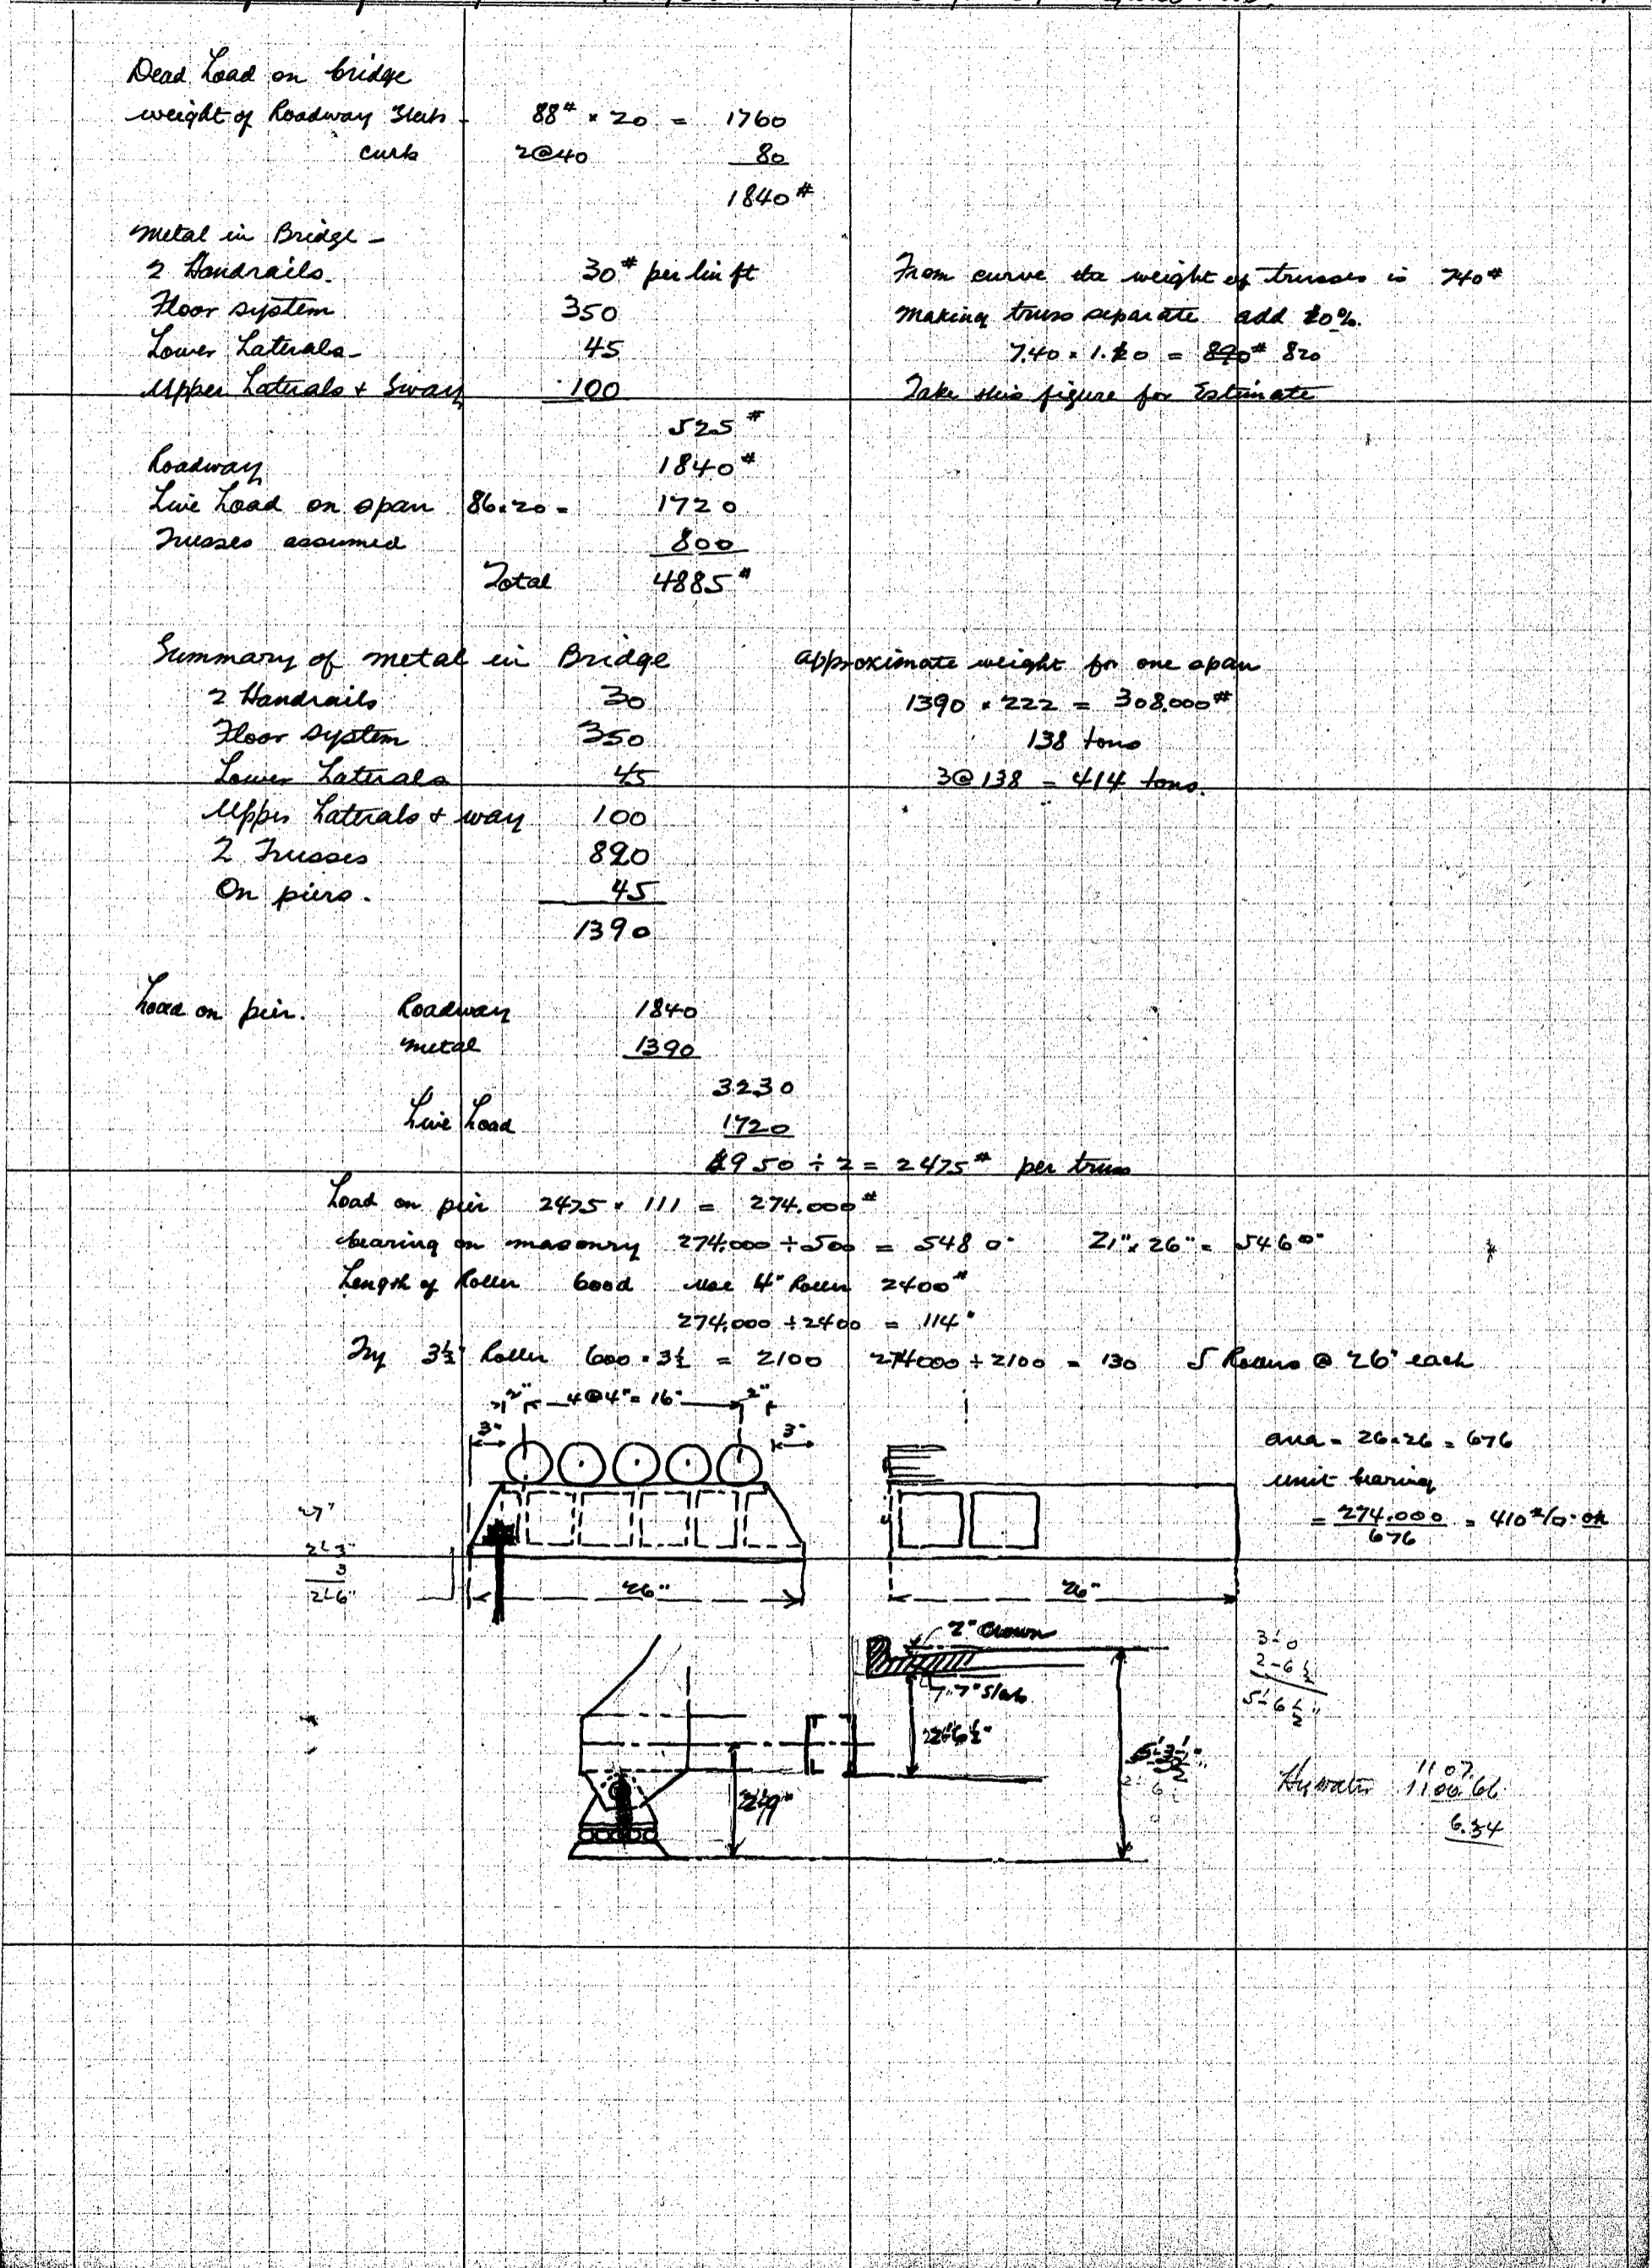 Dead Load on bridge
weight of Roadway Slab - 88# × 20 = 1760
curb 2@40 80
1840#
Metal in Bridge -
2 Handrails. 30# per lin ft
Floor system 350
Lower Laterals - 45
Upper Laterals + Sway 100
525#
From curve the weight of trusses is 740#
Making truss separate add 10%.
740 × 1.10 = 820
Take this figure for Estimate
Roadway 1840#
Live Load on span 86×20 = 1720
Trusses assumed 800
Total 4885#
Summary of metal in Bridge
2 Handrails 30
Floor system 350
Lower Laterals 45
Upper Laterals + way 100
2 Trusses 820
On piers. 45
1390
approximate weight for one span
1390 × 222 = 308.000#
138 tons
3@138 = 414 tons.
Load on pier. Roadway 1840
Metal 1390
3230
Live Load 1720
4950 ÷ 2 = 2475# per truss
Load on pier 2475 × 111 = 274.000#
bearing on masonry 274.000 ÷ 500 = 548 □" 21" × 26" = 546 □"
Length of Roller 600d use 4" Roller 2400#
274.000 ÷ 2400 = 114"
Try 3½" Roller 600 × 3½ = 2100 274000 ÷ 2100 = 130 5 Rollers @ 26" each
2" 4@4" = 16" 2"
3" 3"
area = 26×26 = 676
unit bearing
= 274.000 / 676 = 410#/□" ok
27"
2'-3"
3
2'-6"
26" 26"
2" Crown
7" Slab
3'-0
2-6½
5'-6½"
Hy water 1107.
1100.66
6.34